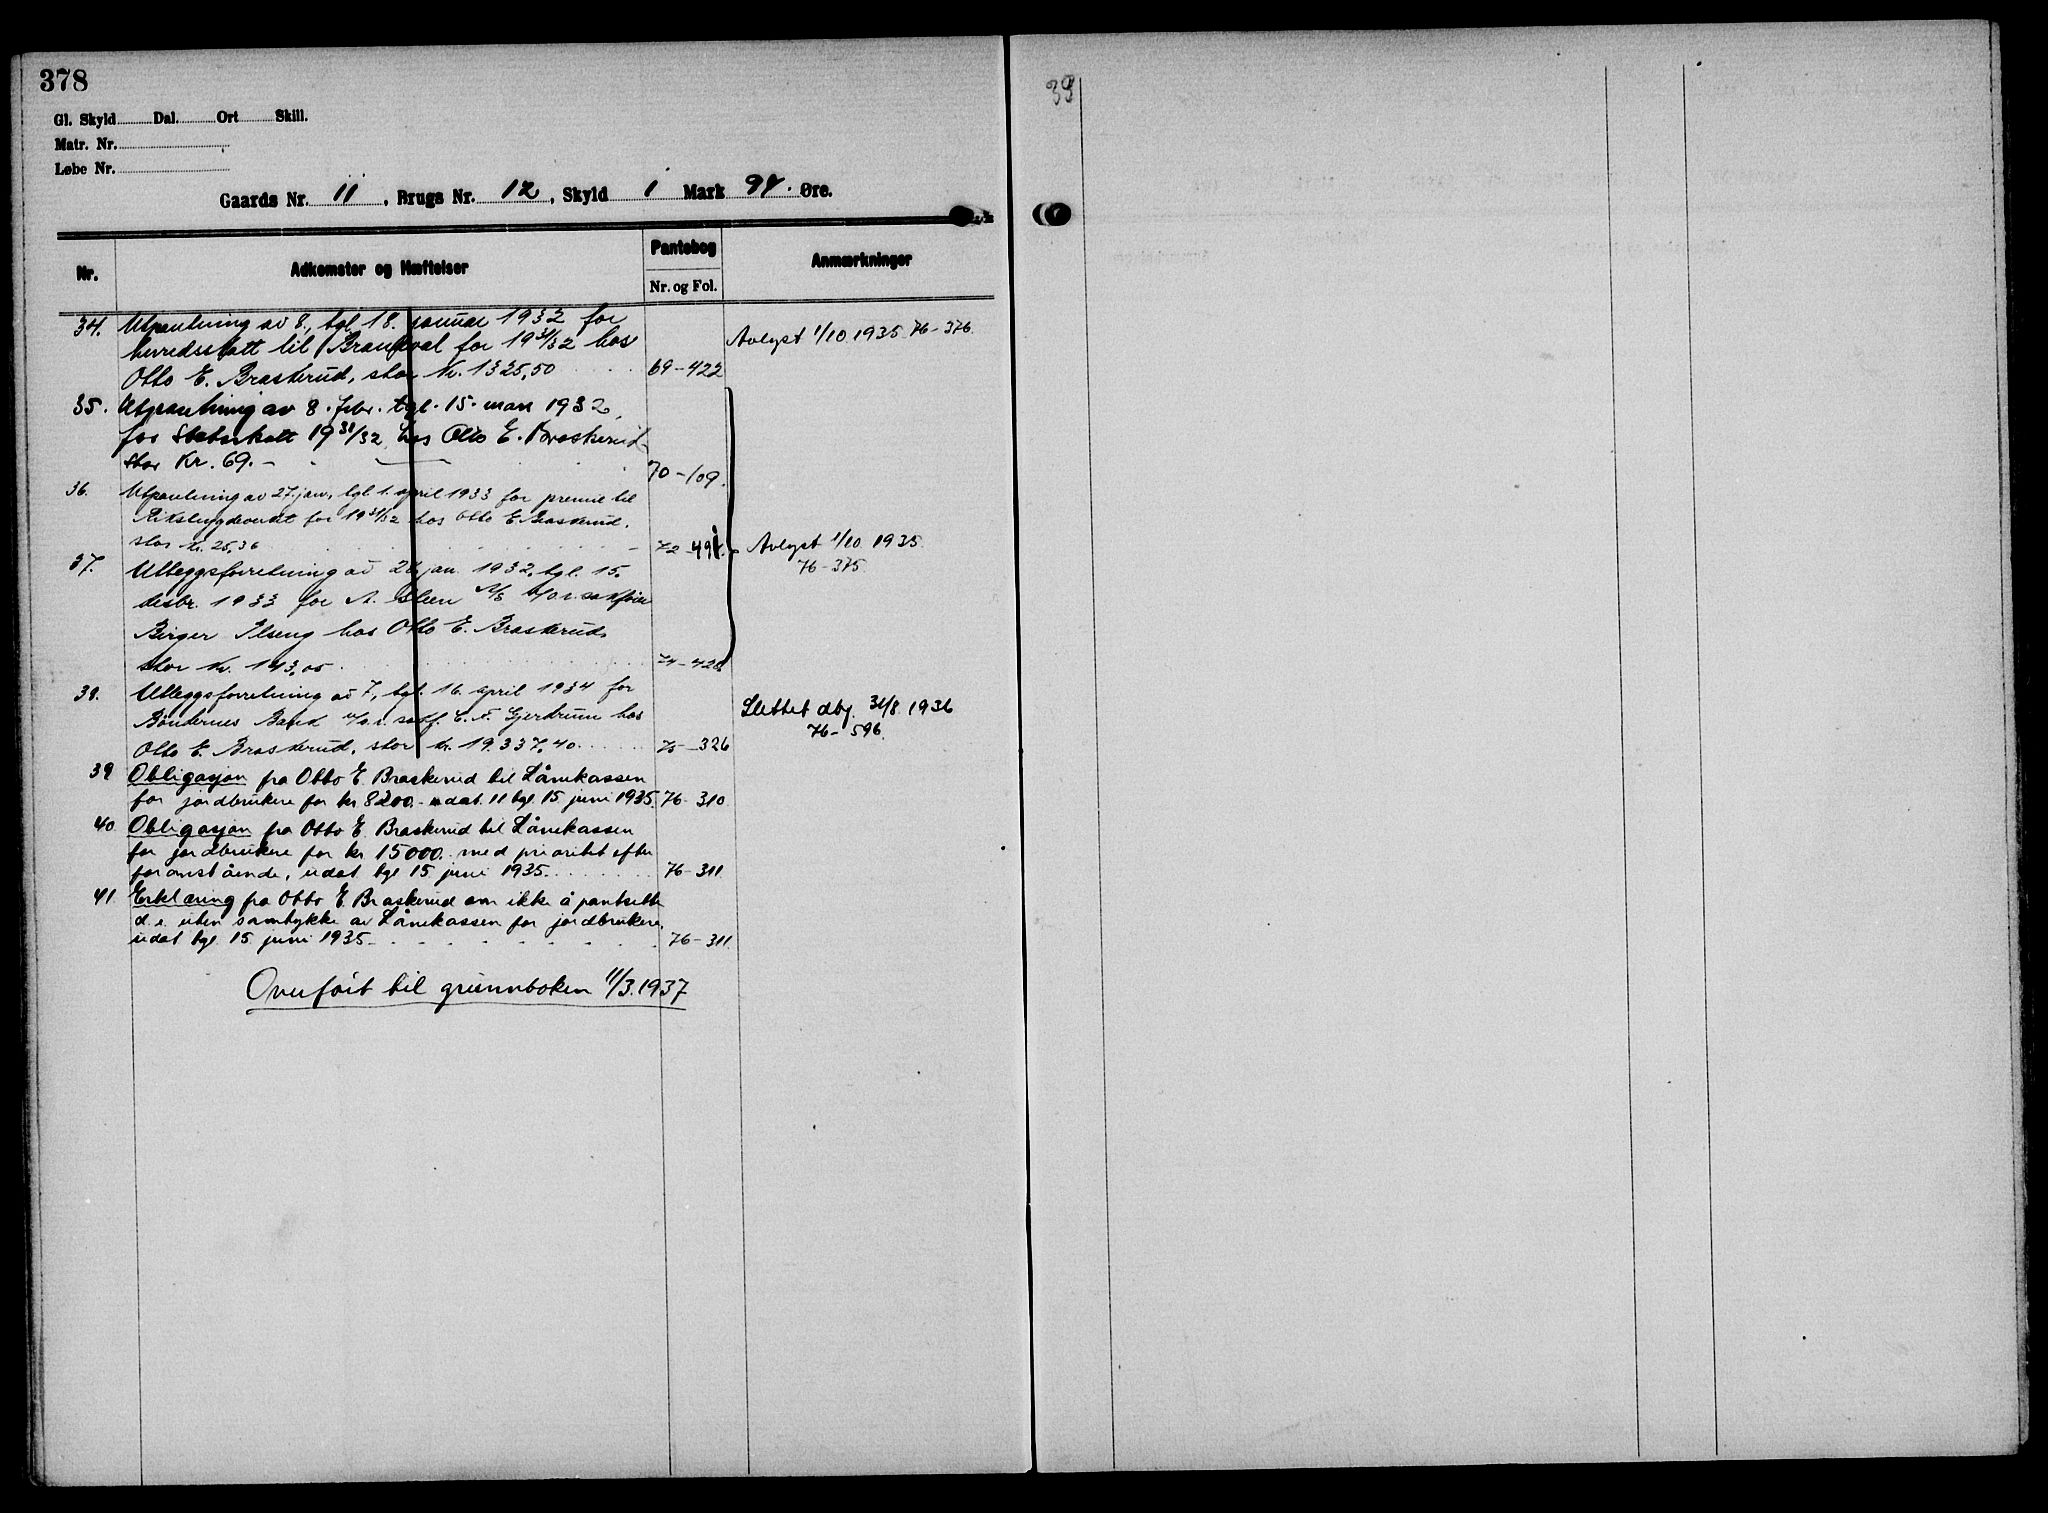 378
Gl. Skyld Dal. Ort Skill.
Matr. Nr.
Løbe Nr.
Gaards Nr. 11, Brugs Nr. 12, Skyld 1 Mark 94. Øre.
Nr. Adkomster og Hæftelser Pantebog Nr. og Fol. Anmærkninger
34. Utpantning av 8., tgl. 18. januar 1932 for
herredsskatt til Brandval for 1931/32 hos
Otto E. Braskerud, stor kr. 1325,50 69-422 Avlyst 1/10 1935. 76-376.
35. Utpantning av 8. febr. tgl. 15. mars 1932
for Statsskatt 1931/32 hos Otto E. Braskerud
stor Kr. 69.- 70-109.
36. Utpantning av 27. jan. tgl. 1. april 1933 for premie til
Rikstrygdeverket for 1931/32 hos Otto E. Braskerud,
stor kr. 25,36 72-491. Avlyst 1/10. 1935.
76-375.
37. Utleggsforretning av jan. 1932, tgl. 15.
desbr. 1933 for A. Steen A/S v/o.r. sakfører
Birger Ilseng hos Otto E. Braskerud,
stor kr. 143,05 74-428.
38. Utleggsforretning av 7, tgl. 16. april 1934 for
Bøndernes Bank v/o.r. sakf. C. F. Gjerdrum hos
Otto E. Braskerud, stor kr. 19.337,40 75-326 Slettet dbf. 31/8. 1936
76-596.
39 Obligasjon fra Otto E Braskerud til Lånekassen
for jordbrukere for kr 8200.- dat. 11 tgl. 15. juni 1935. 76-310.
40. Obligasjon fra Otto E. Braskerud til Lånekassen
for jordbrukere for kr 15000.- med prioritet efter
foranstående, udat tgl 15. juni 1935. 76-311.
41. Erklæring fra Otto E. Braskerud om ikke å pantsette
d.e. uten samtykke av Lånekassen for jordbrukere,
udat tgl. 15. juni 1935. 76-311.
Overført til grunnboken 11/3.1937
39